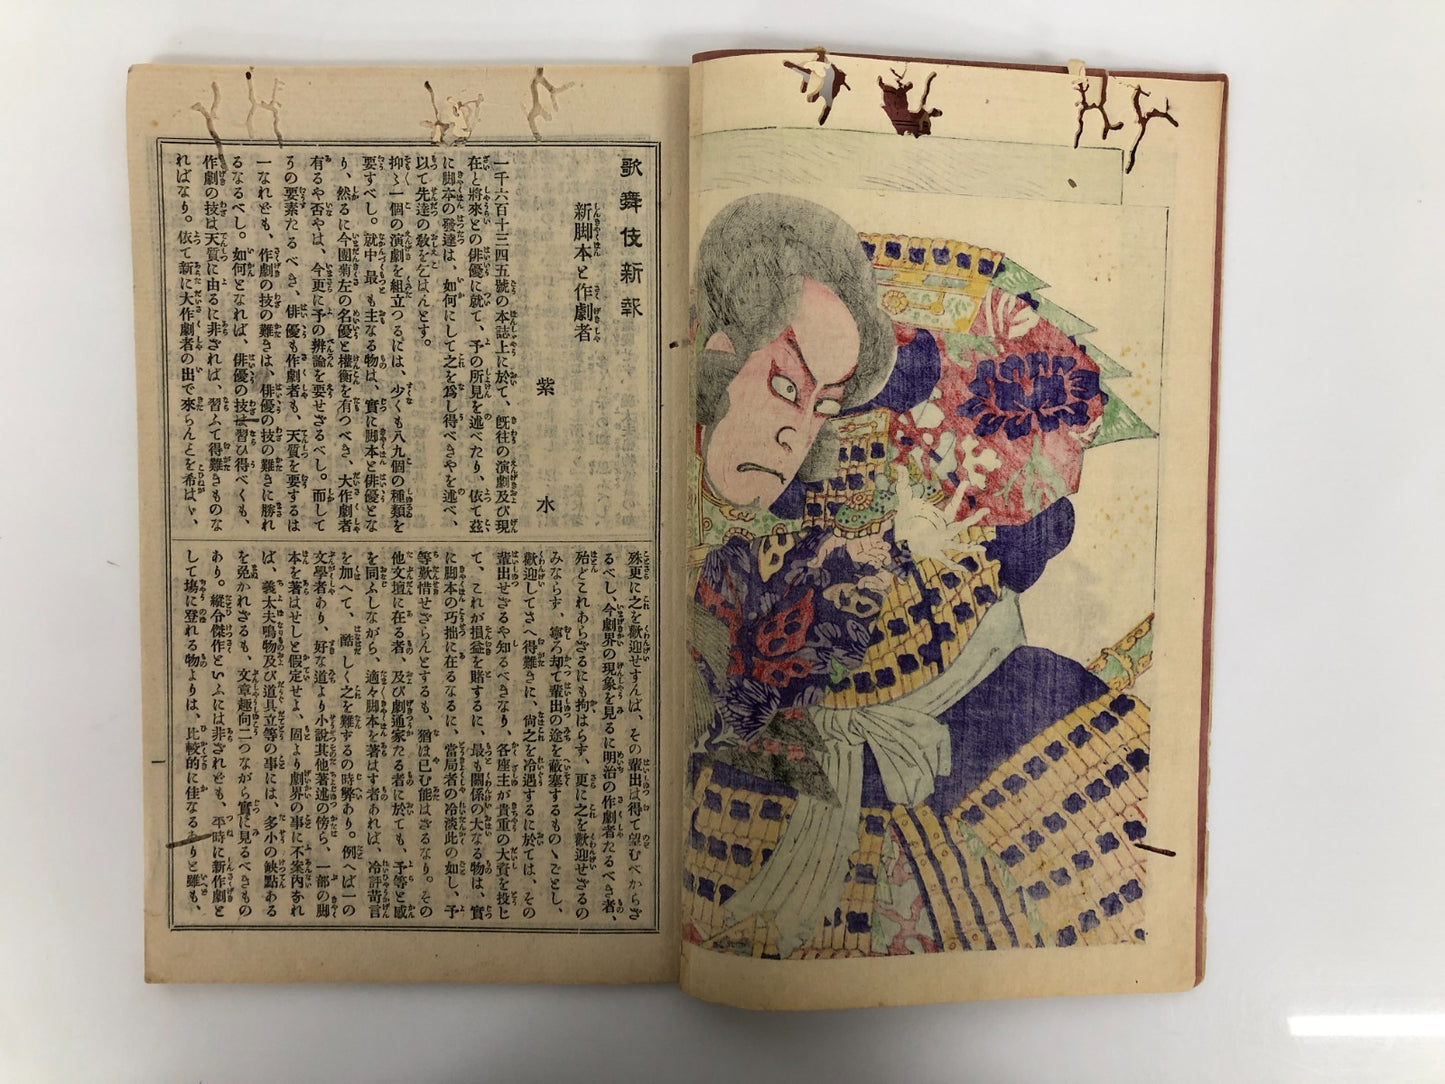 歌舞伎新報
新脚本と作劇者
紫水
一千六百十三四五號の本誌上に於て、既往の演劇及び現
在と將來との俳優に就て、予の所見を述べたり、依て玆
に脚本の發達は、如何にして之を爲し得べきやを述べ、
以て先達の敎を乞はんとす。
抑〻一個の演劇を組立つるには、少くも八九個の種類を
要すべし。就中最も主なる物は、實に脚本と俳優とな
り、然るに今團菊左の名優と權衡を有つべき、大作劇者
有るや否やは、今更に予の辨論を要せざるべし。而して
その要素たるべき、俳優も作劇者も、天質を要するは
一なれども、作劇の技の難きは、俳優の技の難きに勝れ
るなるべし。如何となれば、俳優の技は習ひ得べくも、
作劇の技は天質に由るに非ざれば、習ふて得難きものな
ればなり。依て新に大作劇者の出で來らんことを希はゞ、
殊更に之を歡迎せずんば、その輩出は得て望むべからざ
るべし、今劇界の現象を見るに明治の作劇者たるべき者、
殆どこれあらざるにも拘はらず、更に之を歡迎せざるの
みならず、寧ろ却て輩出の途を蔽塞するものゝごとし、
歡迎してさへ得難きに、尙之を冷遇するに於ては、その
輩出せざるや知るべきなり、各座主が貴重の大資を投じ
て、これが損益を賭するに、最も關係の大なる物は、實
に脚本の巧拙に在るなるに、當局者の冷淡此の如し、予
等歎惜せざらんとするも、猶ほ已む能はざるなり。その
他文壇に在る者、及び劇通家たる者に於ても、予等と感
を同ふしながら、適々脚本を著はす者あれば、冷評苛言
を加へて、酷しく之を難するの時弊あり。例へば一の
文學者あり、好な道より小說其他著述の傍ら、一部の脚
本を著はせしと假定せよ、固より劇界の事に不案內なれ
ば、義太夫鳴物及び道具立等の事には、多小の缺點ある
を免かれざるも、文章趣向二つながら實に見るべきもの
あり。縱令傑作といふには非ざれども、平時に新作劇と
して塲に登れる物よりは、比較的に佳なるありと雖も、